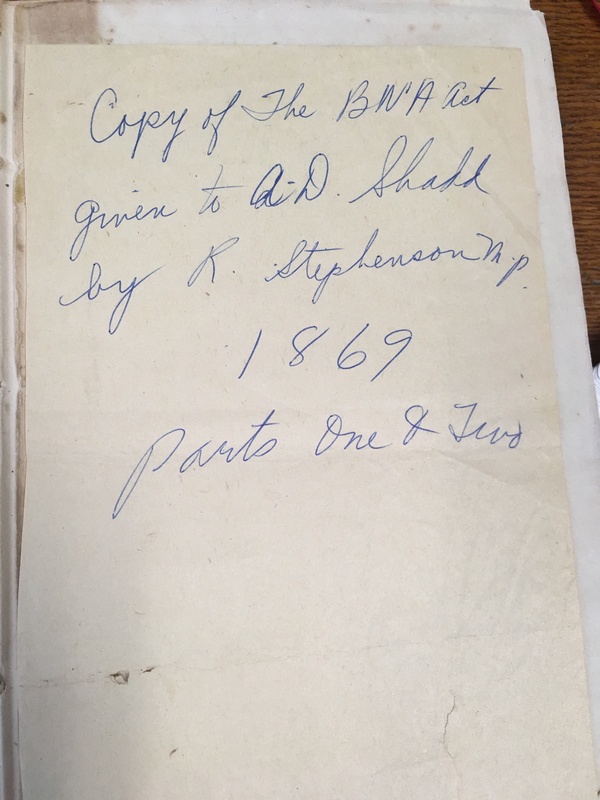 Copy of The BNA Act
given to A.D. Shadd
by R. Stephenson M.P.
1869
Parts One & Two